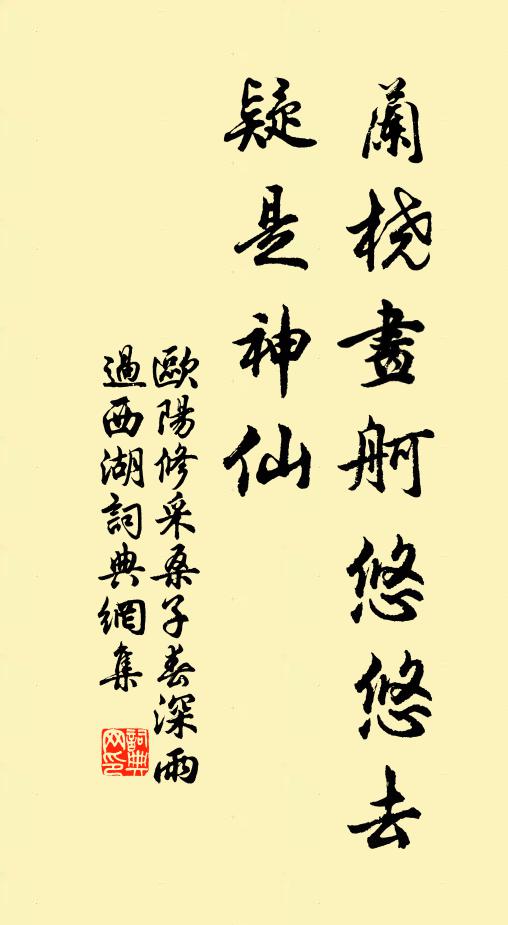 蘭橈畫舸悠悠去
疑是神仙
歐陽修采桑子春深雨
過西湖詞典網集
詞典
网印